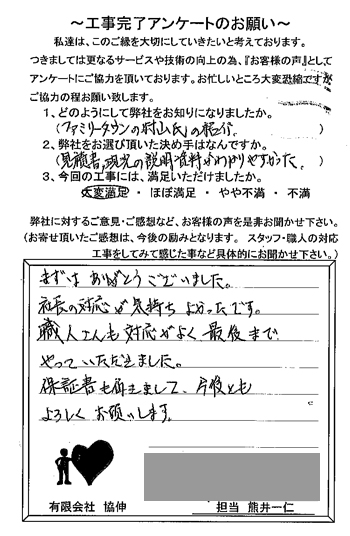 ～工事完了アンケートのお願い～
私達は、このご縁を大切にしていきたいと考えております。
つきましては更なるサービスや技術の向上の為、『お客様の声』として
アンケートにご協力を頂いております。お忙しいところ大変恐縮ですが
ご協力の程お願い致します。
1、どのようにして弊社をお知りになりましたか。
(ファミリータウンの村山氏の紹介。)
2、弊社をお選び頂いた決め手はなんですか。
(見積書、現況の説明資料がわかりやすかった。)
3、今回の工事には、満足いただけましたか。
大変満足 ・ ほぼ満足 ・ やや不満 ・ 不満
弊社に対するご意見・ご感想など、お客様の声を是非お聞かせ下さい。
(お寄せ頂いたご感想は、今後の励みとなります。 スタッフ・職人の対応
工事をしてみて感じた事など具体的にお聞かせ下さい。)
まずは ありがとうございました。
社長の対応が気持ちよかったです。
職人さんも対応がよく最後まで
やっていただきました。
保証書も頂きまして、今後とも
よろしくお願いします。
有限会社 協伸
担当 熊井一仁